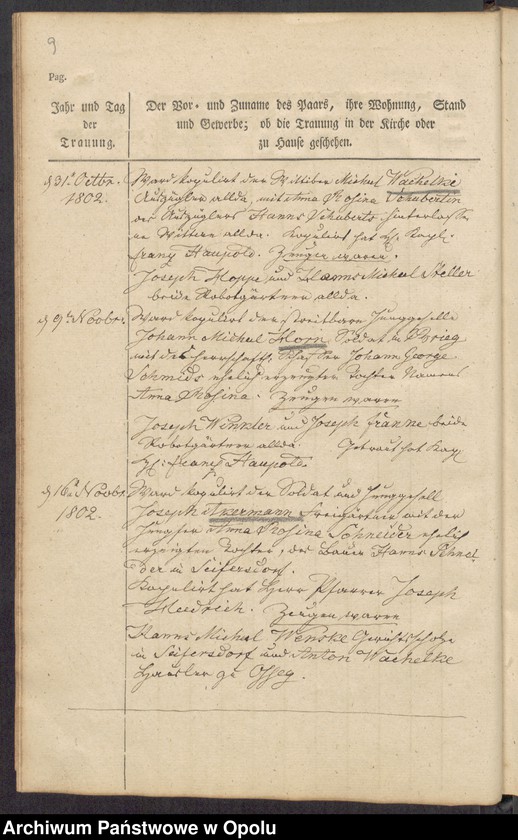 9
Pag.
Jahr und Tag
der
Trauung.
Der Vor- und Zuname des Paars, ihre Wohnung, Stand
und Gewerbe; ob die Trauung in der Kirche oder
zu Hause geschehen.
d 31t Octbr.
1802.
Ward kopulirt der Wittiber Michel Wachelke
Auszügler allda, mit Anna Rosina Schubertin
des Auszüglers Hanns Schuberts hinterlasse
ne Wittwe allda. Kopulirt hat H. Kapl.
franz Haupold. Zeugen waren.
Joseph Hoppe und Hanns Michel Steller
beide Robotgärtner allda.
d 9t Novbr.
Ward kopulirt der Junggeselle
Johann Michel Horn, Soldat in Brieg
mit des Herrschaftl. Johann George
Schmids ehelich erzeugten Tochter Namens
Anna Rosina. Zeugen waren
Joseph Winkler und Joseph franne beide
Robotgärtner allda. Getraut hat Kapl
H. franz Haupold.
d 16t Novbr.
1802.
Ward kopulirt der Soldat und Junggesell
Joseph Axermann Freigärtner mit der
Jungfer Anna Rosina Schneider ehelich
erzeugten Tochter, des Bauer Hanns Schnei
der in Seifersdorf.
Kopulirt hat Herr Pfarrer Joseph
Heidrich. Zeugen waren
Hanns Michel Wenske Gerichtsscholze
in Seifersdorf und Anton Wachelke
Häusler zu
Archiwum Państwowe w Opolu